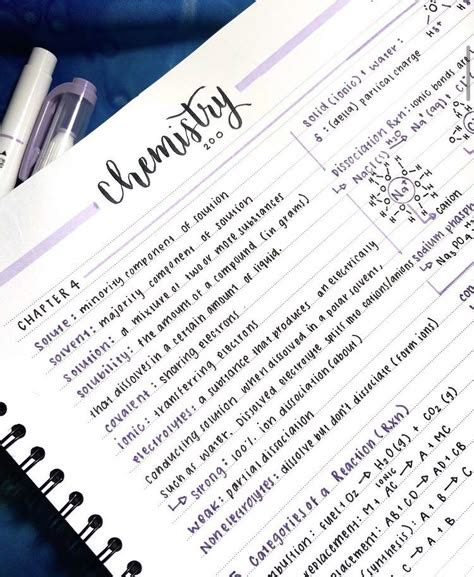 Chemistry
200
CHAPTER 4
Solute: minority component of solution
Solvent: majority component of solution
Solution: a mixture of two or more substances
Solubility: the amount of a compound (in grams)
that dissolves in a certain amount of liquid.
Covalent: sharing electrons
Ionic: transferring electrons
Electrolytes: a substance that produces an electrically
conducting solution when dissolved in a polar solvent,
such as water. Dissolved electrolyte splits into cations/anions
↳ Strong: 100% ion dissociation (about)
Weak: partial dissociation
Nonelectrolytes: dissolve but don't dissociate (form ions)
5 Categories of a Reaction (Rxn)
mbustion: fuel + O2 → H2O (g) + CO2 (g)
eplacement: M + AC → A + MC
placement: AB + CD → AD + CB
(synthesis): A + B → C
: C → A + B
Solid (ionic) + water:
δ: (delta) partical charge
Dissociation Rxn: ionic bonds ar
↳ NaCl (s) H2O → Na+ (aq) + C
Na+
Cation
sodium phosph
Na3PO4